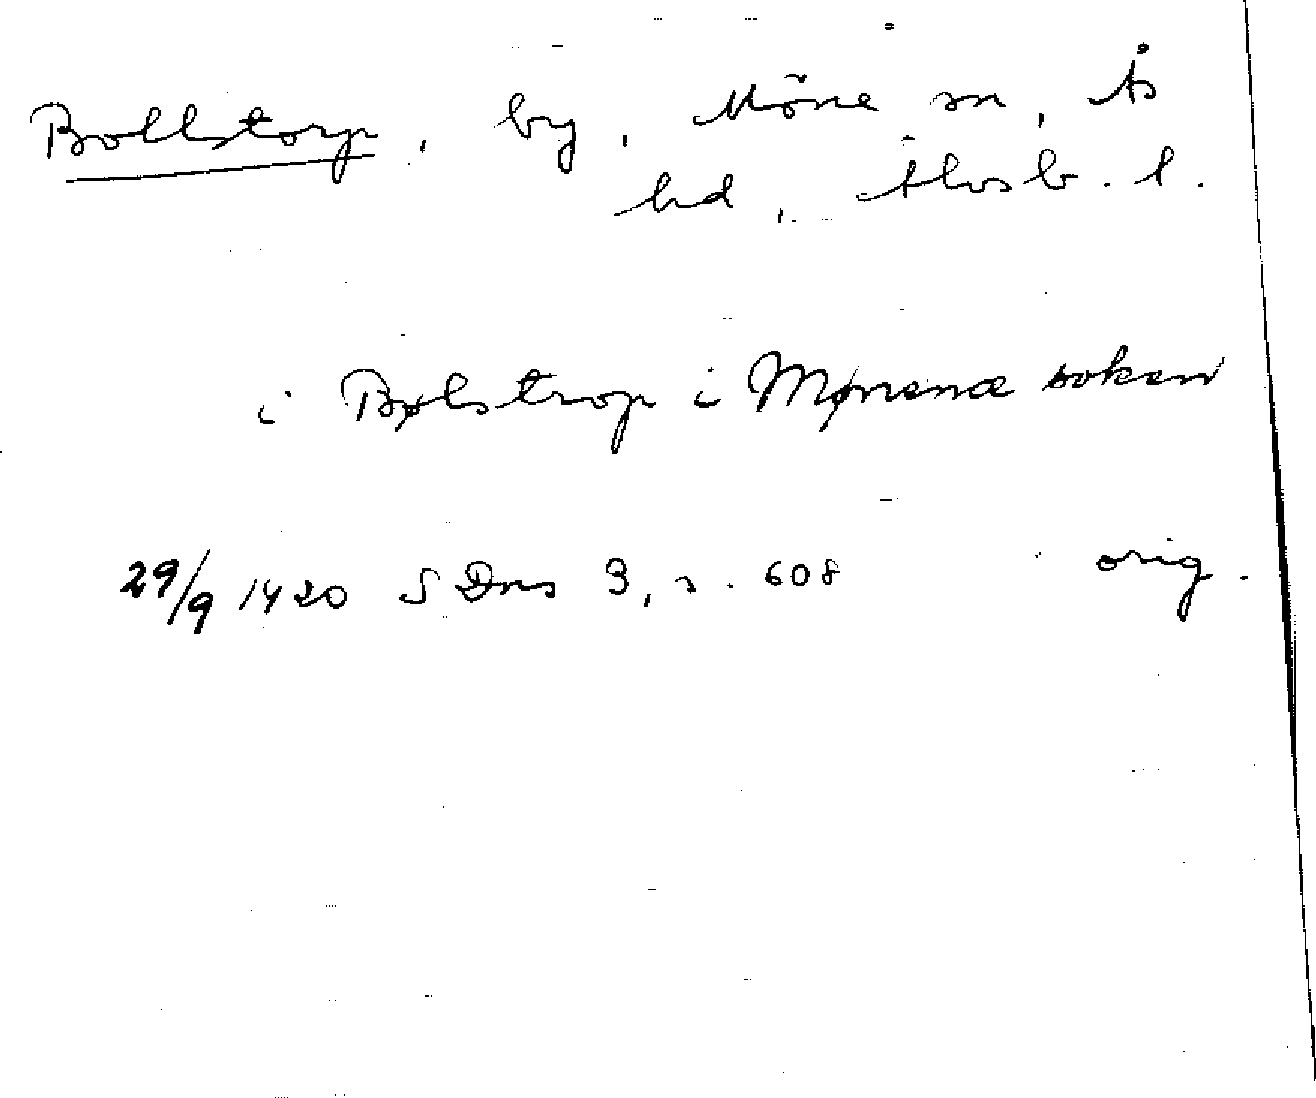 Bollstorp, by, Möne sn, Ås
hd, Älvsb. l.
i Bølstrop i Mønenæ soken
29/9 1420 SDns 3, s. 608 orig.